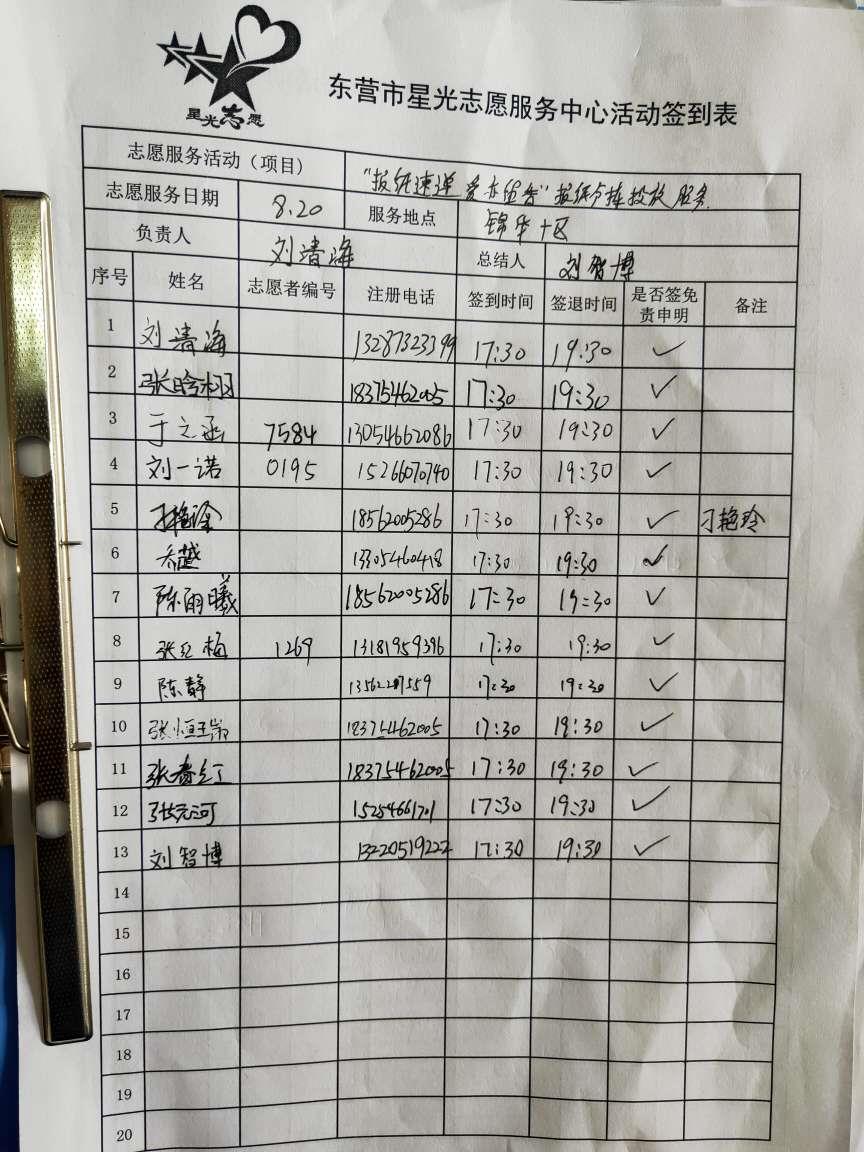 星光志愿
东营市星光志愿服务中心活动签到表
志愿服务活动（项目） "报纸速递 爱在" 报纸 投放服务
志愿服务日期 8.20 服务地点 锦华十区
负责人 刘清海 总结人 刘智博
序号 姓名 志愿者编号 注册电话 签到时间 签退时间 是否签免责申明 备注
1 刘清海 13287323399 17:30 19:30 ✓
2 张晗栩 18375462005 17:30 19:30 ✓
3 于立函 7584 13054662086 17:30 19:30 ✓
4 刘一诺 0195 15266070740 17:30 19:30 ✓
5 18562005286 17:30 19:30 ✓ 刁艳玲
6 乔越 13305460418 17:30 19:30 ✓
7 陈雨曦 18562005286 17:30 19:30 ✓
8 张红梅 1269 13181959396 17:30 19:30 ✓
9 陈静 17:30 19:30 ✓
10 张恒 18375462005 17:30 19:30 ✓
11 张春红 18375462005 17:30 19:30 ✓
12 张元河 15254661701 17:30 19:30 ✓
13 刘智博 13220519222 17:30 19:30 ✓
14
15
16
17
18
19
20